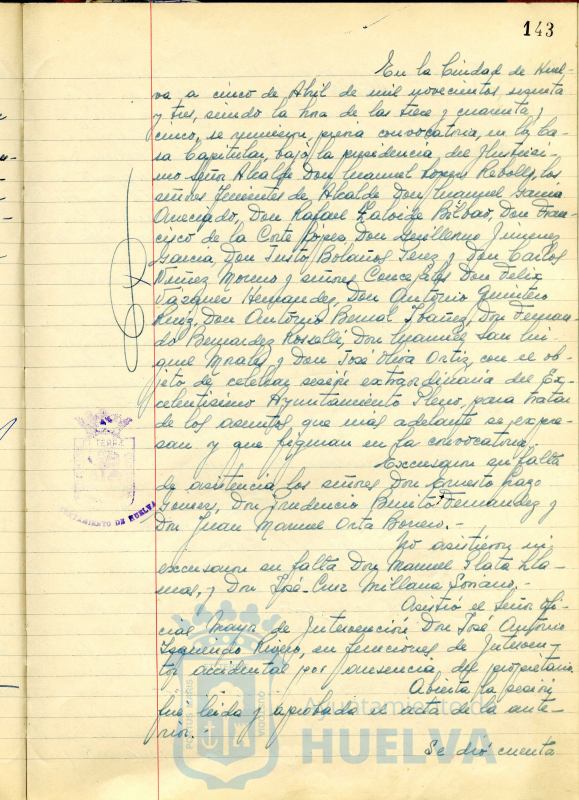 143
En la Ciudad de Huel-
va a cinco de Abril de mil novecientos sesenta
y tres, siendo la hora de las trece y cuarenta y
cinco, se reunieron, previa convocatoria, en la Ca-
sa Capitular, bajo la presidencia del Ilustrísi-
mo Señor Alcalde Don Manuel López Rebollo, los
señores Tenientes de Alcalde Don Manuel García
Don Rafael Bilbao, Don Fran-
cisco de la Corte López, Don Guillermo Jimenez
García, Don Justo Bolaños Perez y Don Carlos
Nuñez Moreno y señores Concejales Don Félix
Vazquez Hernandez, Don Antonio Quintero
Ruiz, Don Antonio Bernal Ibañez, Don Fernan-
do Bernardez Rosselló, Don Manuel San Mi-
guel Morales y Don José Oliva Ortiz, con el ob-
jeto de celebrar sesión extraordinaria del Ex-
celentísimo Ayuntamiento Pleno, para tratar
de los asuntos que más adelante se expre-
san y que figuran en la convocatoria.
Excusaron su falta
de asistencia los señores Don Ernesto Lazo
Don Prudencio Benito Fernandez y
Don Juan Manuel Orta Borrero.-
No asistieron ni
excusaron su falta Don Manuel Plata Lla-
mas, y Don José-Cruz Millana Soriano.-
Asistió el Señor Ofi-
cial Mayor de Intervención Don José Antonio
Izquierdo Rivero, en funciones de Interven-
tor accidental por ausencia del propietario.
Abierta la sesión
fue leida y aprobada el acta de la ante-
rior.-
Se dió cuenta
AYUNTAMIENTO DE HUELVA
PORTUS MARIS
Ayuntamiento de
HUELVA